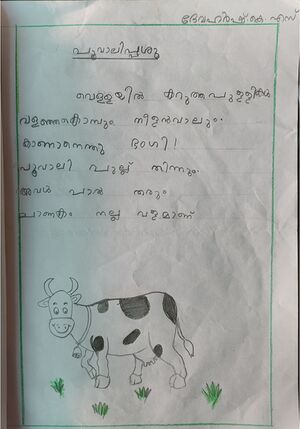 ദേവഹർഷ് കെ എസ്
പൂവാലിപ്പശു
വെള്ളയിൽ കറുത്തപുള്ളികൾ
വളഞ്ഞകൊമ്പും നീളൻവാലും.
കാണാനെന്തു ഭംഗി!
പൂവാലി പുല്ല് തിന്നും.
അവൾ പാൽ തരും
ചാണകം നല്ല വളമാണ്